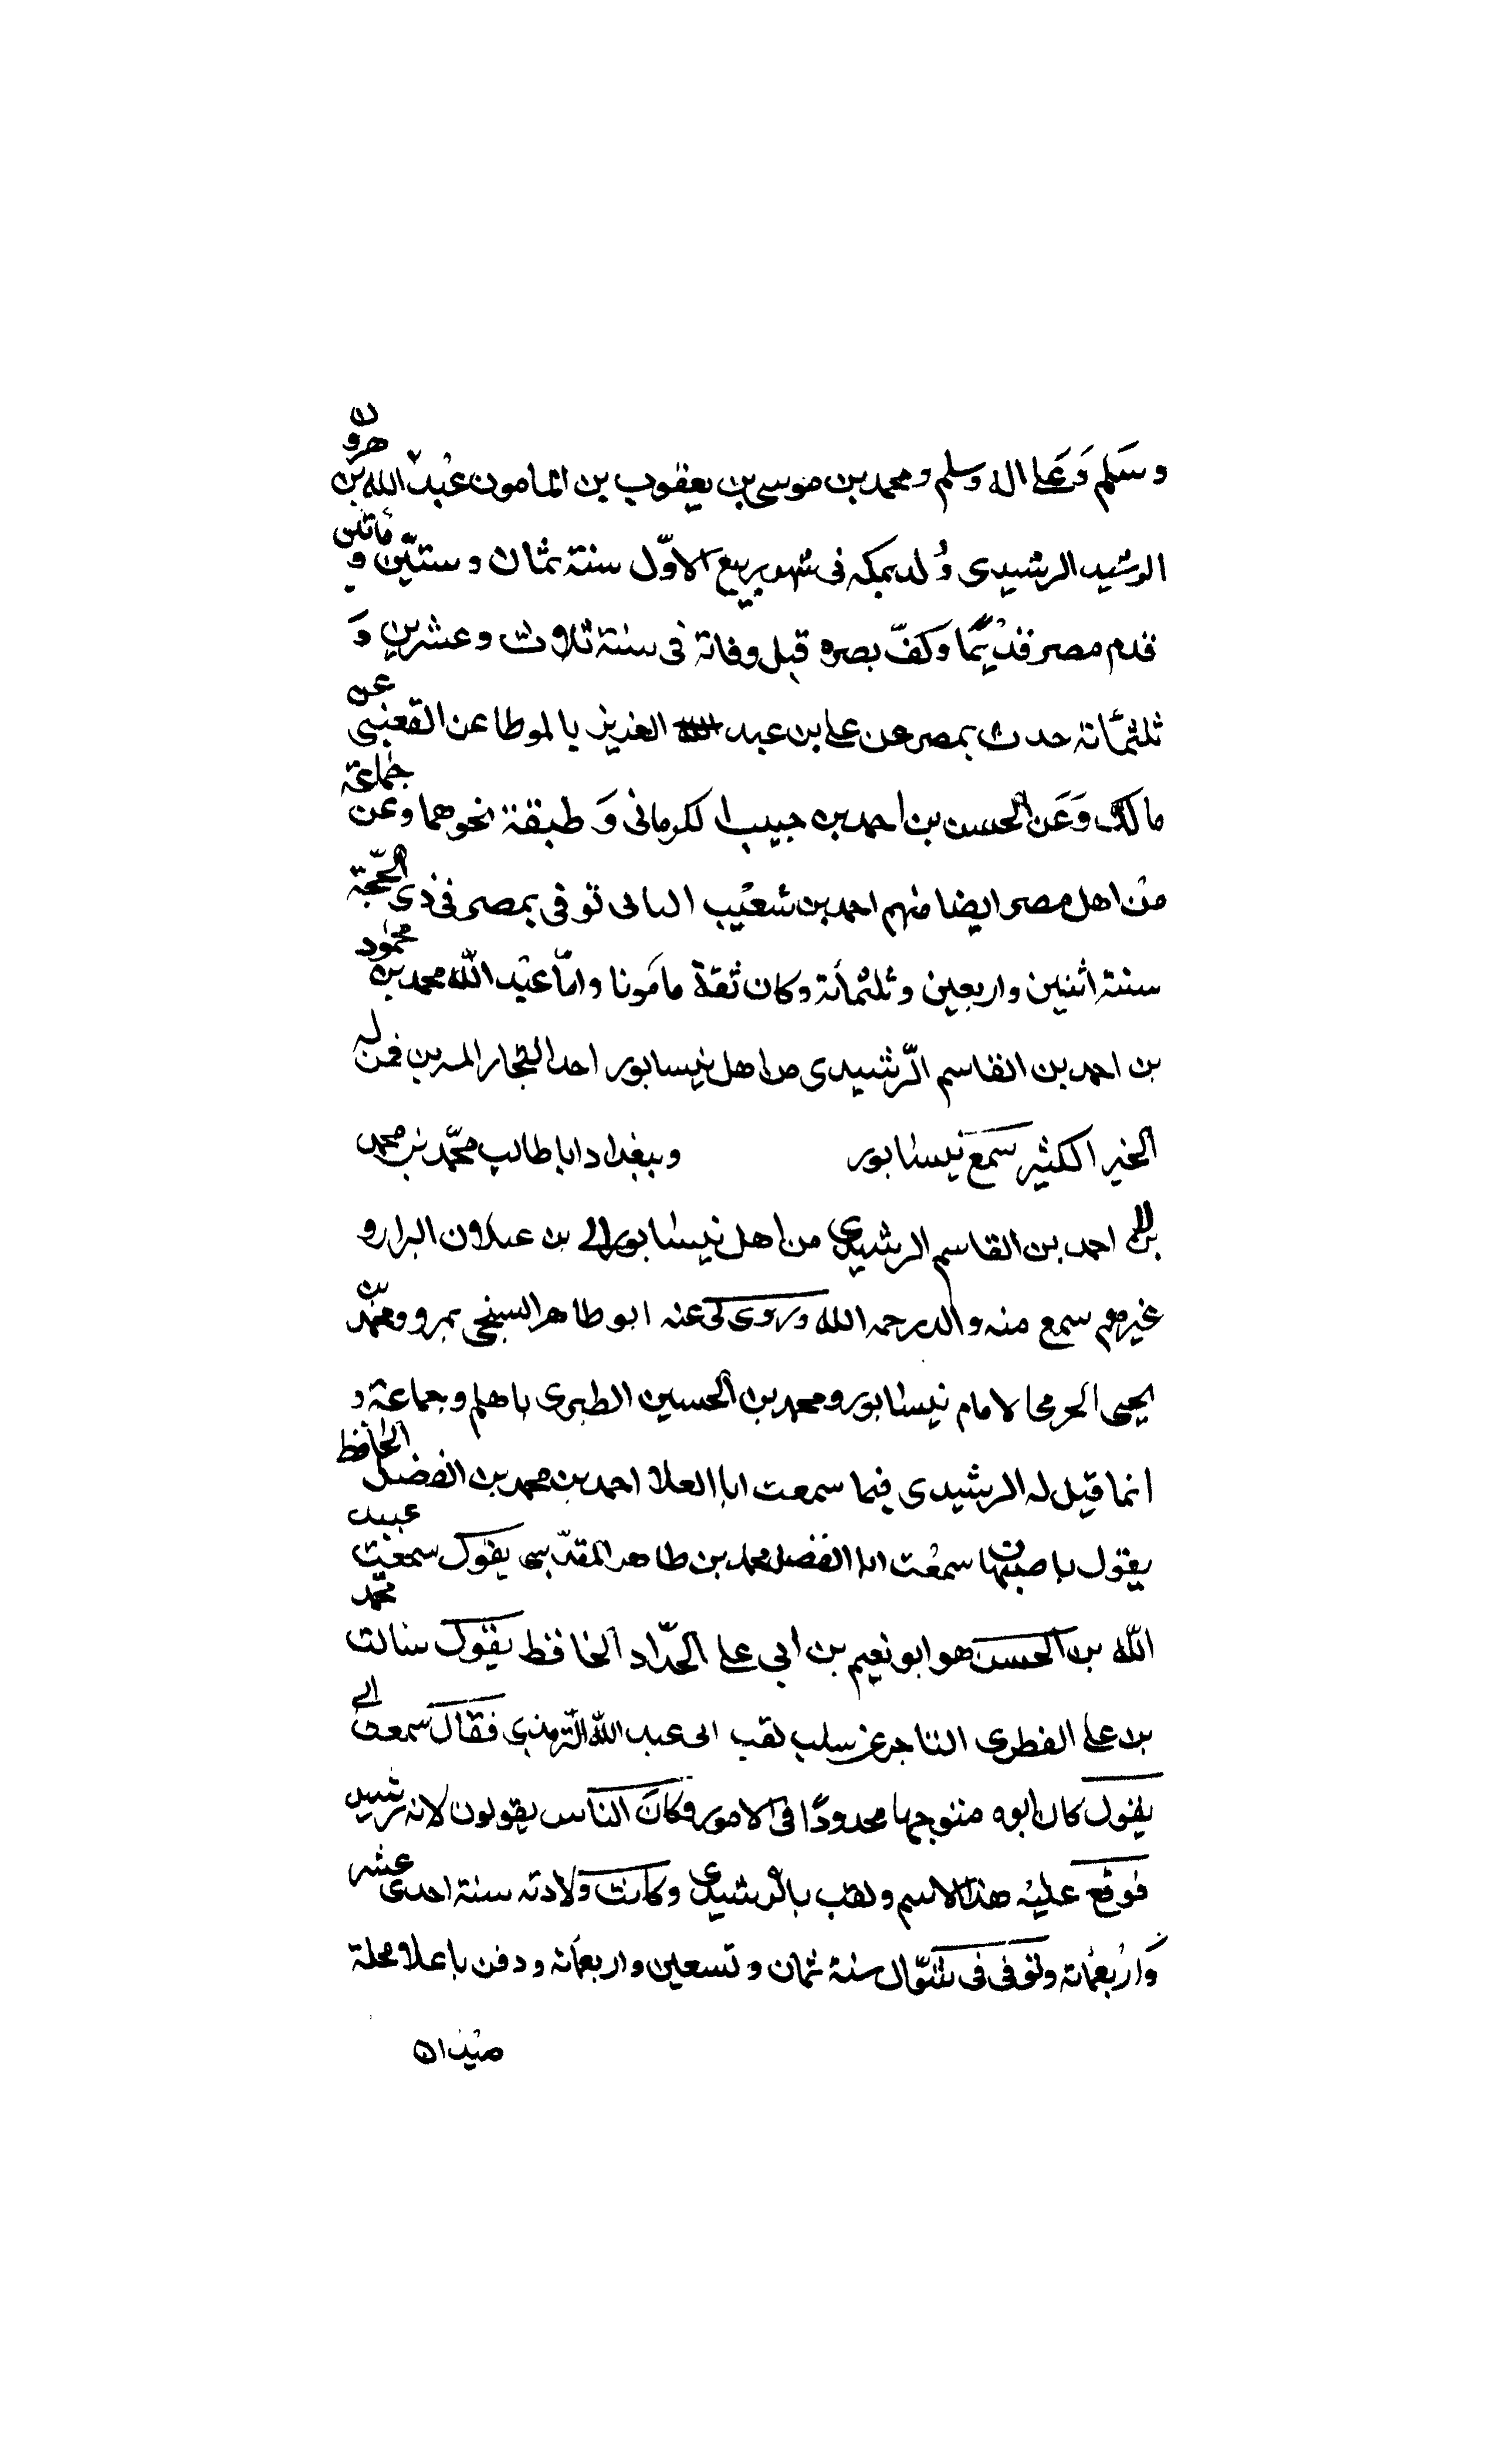 وسلم وعلى اله وسلم ومحمد بن موسى بن يعقوب بن المامون عبد الله بن هرون
الرشيد الرشيدى ولد بمكه فى شهر ربيع الاول سنة ثمان وستين و مأتين
قدم مصر قديما وكف بصره قبل وفاته فى سنة ثلاث وعشرين و
ثلثمائة حدث بمصر عن على بن عبد العزيز بالموطا عن القعنبى عن
مالك وعن الحسن بن احمد بن حبيب الكرمانى وطبقة نحوهما وعن جماعة
من اهل مصر ايضا منهم احمد بن شعيب توفى بمصر فى ذى الحجة
سنة اثنين واربعين وثلثمائة وكان ثقة مامونا واما عبد الله محمد بن محمود
بن احمد بن القاسم الرشيدى من اهل نيسابور احد التجار فمن له
الخير الكثير سمع نيسابور وببغداد ابا طالب محمد بن محمد
بن احمد بن القاسم الرشيدى من اهل نيسابور بن غيلان البزار و
غيرهم سمع منه والد رحمه الله وروى لى عنه ابو طاهر السنجى بمرو ومحمد بن
يحيى الامام نيسابور ومحمد بن الحسين الطبرى باهلم وجماعة و
انما قيل له الرشيدى فيما سمعت ابا العلا احمد بن محمد بن الفضل الحافظ
يقول باصبهان سمعت ابا الفضل محمد بن طاهر المقدسى يقول سمعت عبيد
الله بن الحسن هو ابو نعيم بن ابى على الحداد الحافظ يقول سالت محمد
بن على الفطرى التاجر عن سلب لقب ابى عبد الله الترمذى فقال سمعت ابى
يقول كان ابوه متوجها محدودا فى الامور وكان الناس يقولون لانه رشيد
فوقع عليه هذا الاسم ولقب بالرشيدى وكانت ولادته سنة احدى عشر
واربعمائة وتوفى فى شوال سنة ثمان وتسعين واربعمائة ودفن باعلا محلة